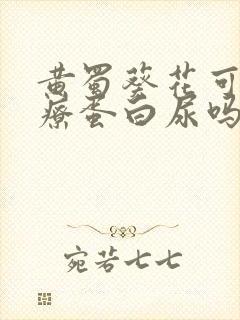 黄蜀葵花可
疗蛋白尿吗
宛若七七